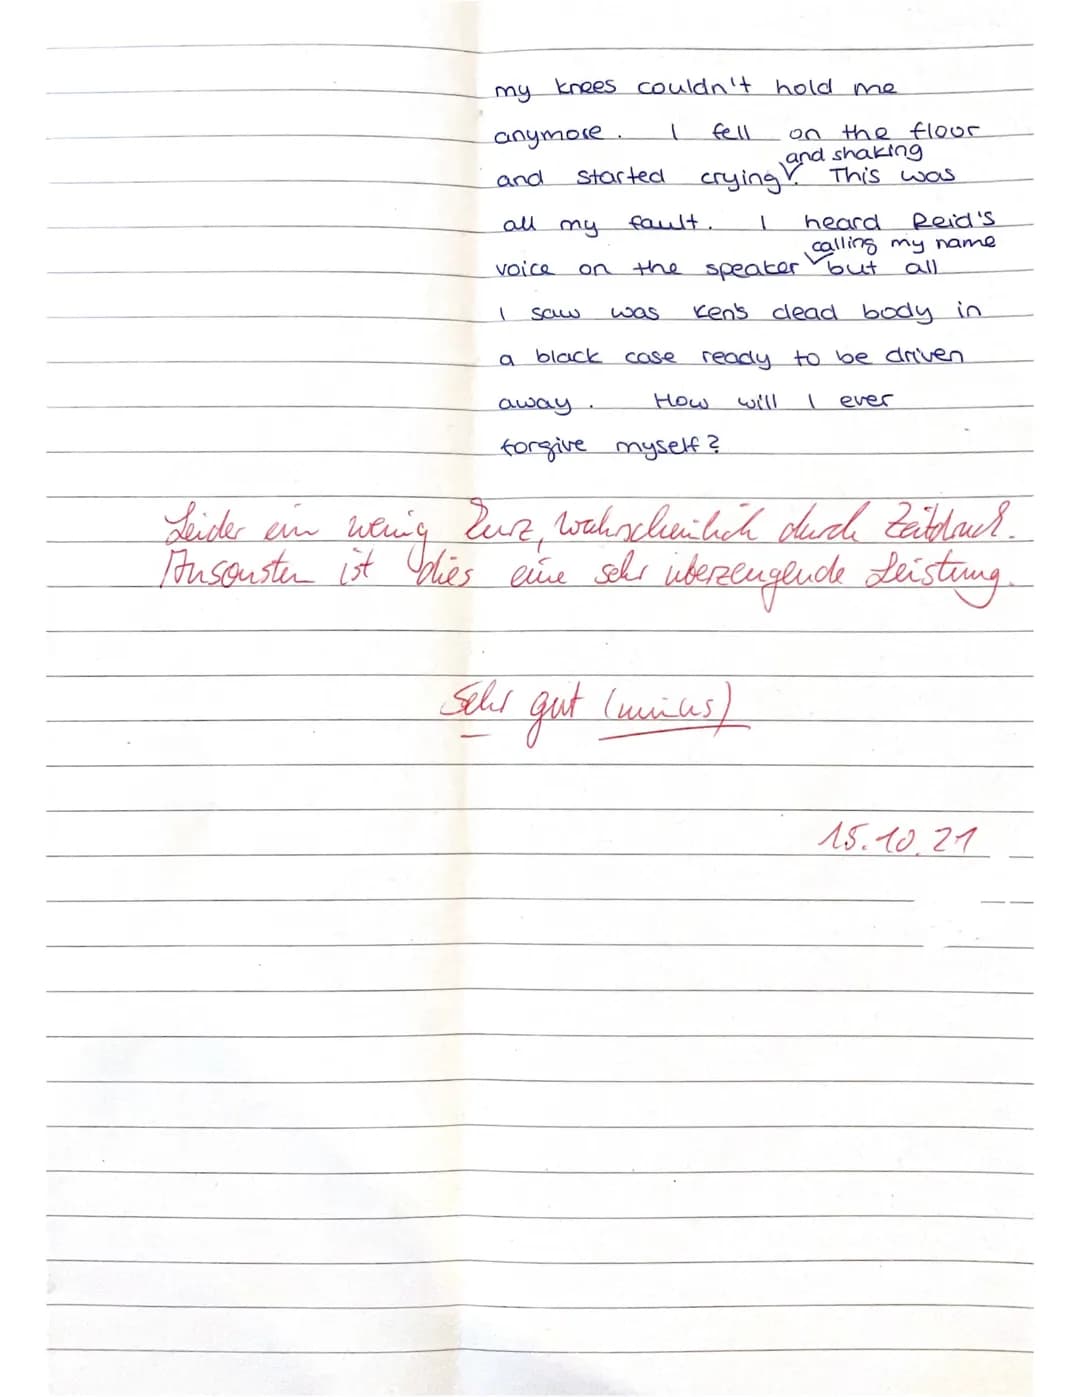 my knees couldn't hold me
anymore. I fell on the floor
and shaking
and started crying. This was
all my fault. I heard Reid's
calling my name
voice on the speaker but all
I saw was Ken's dead body in
a black case ready to be driven
away. How will I ever
forgive myself?
Leider ein wenig kurz, wahrscheinlich durch Zeitdruck.
Ansonsten ist dies eine sehr überzeugende Leistung.
Sehr gut (minus)
15.10.21